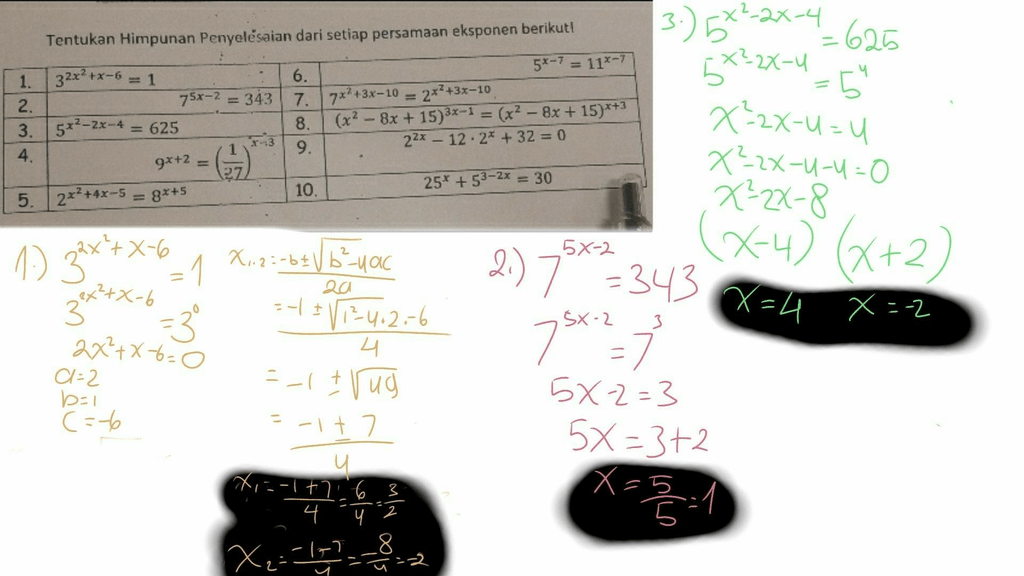 Tentukan Himpunan Penyelesaian dari setiap persamaan eksponen berikut!
1. 3^{2x²+x−6} = 1
2. 7^{5x−2} = 343
3. 5^{x²−2x−4} = 625
4. 9^{x+2} = (1/27)^{x−3}
5. 2^{x²+4x−5} = 8^{x+5}
6. 5^{x−7} = 11^{x−7}
7. 7^{x²+3x−10} = 2^{x²+3x−10}
8. (x² − 8x + 15)^{3x−1} = (x² − 8x + 15)^{x+3}
9. 2^{2x} − 12 · 2^x + 32 = 0
10. 25^x + 5^{3−2x} = 30
1.) 3^{2x²+x-6} = 1
3^{2x²+x-6} = 3^0
2x²+x-6=0
a=2
b=1
c=-6
x_{1.2} = -b±√(b²-4ac) / 2a
= -1 ± √(1²-4.2.-6) / 4
= -1 ± √49
= -1 ± 7 / 4
x_1 = -1+7 / 4 = 6/4 = 3/2
x_2 = -1-7 / 4 = -8/4 = -2
2.) 7^{5x-2} = 343
7^{5x-2} = 7^3
5x-2=3
5x=3+2
x = 5/5 = 1
3.) 5^{x²-2x-4} = 625
5^{x²-2x-4} = 5^4
x²-2x-4=4
x²-2x-4-4=0
x²-2x-8
(x-4) (x+2)
x=4 x=-2